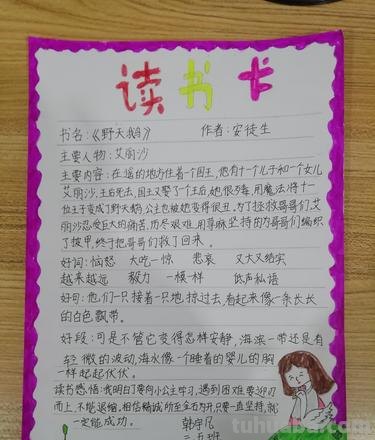 读书卡
书名:《野天鹅》 作者:安徒生
主要人物:艾丽沙
主要内容:在遥的地方住着一个国王,他有十一个儿子和一个女儿
艾丽沙,王后死去,国王又娶了王后,她很歹毒,用魔法将十一
位王子变成了野天鹅,公主也被她变得很丑。为了拯救哥哥们,艾
丽沙忍受巨大的痛苦,历尽艰难,用荨麻坚持的为哥哥们编织
了披甲,终于把哥哥们救了回来。
好词:恼怒 大吃一惊 悲哀 又大又结实
越来越远 毅力 一模一样 低声私语
好句:他们一只接着一只地掠过去,看起来像一条长长
的白色飘带。
好段:可是不管它变得怎样安静,海滨一带还是有
轻微的波动,海水像一个睡着的婴儿的胸
一样起起伏伏。
读书感悟:我明白了要向小公主学习,遇到困难要迎刃
而上,不能退缩,相信精诚所至金石为开,只要一直坚持,就
一定能成功。 韩
二五班
tuhuabao.com